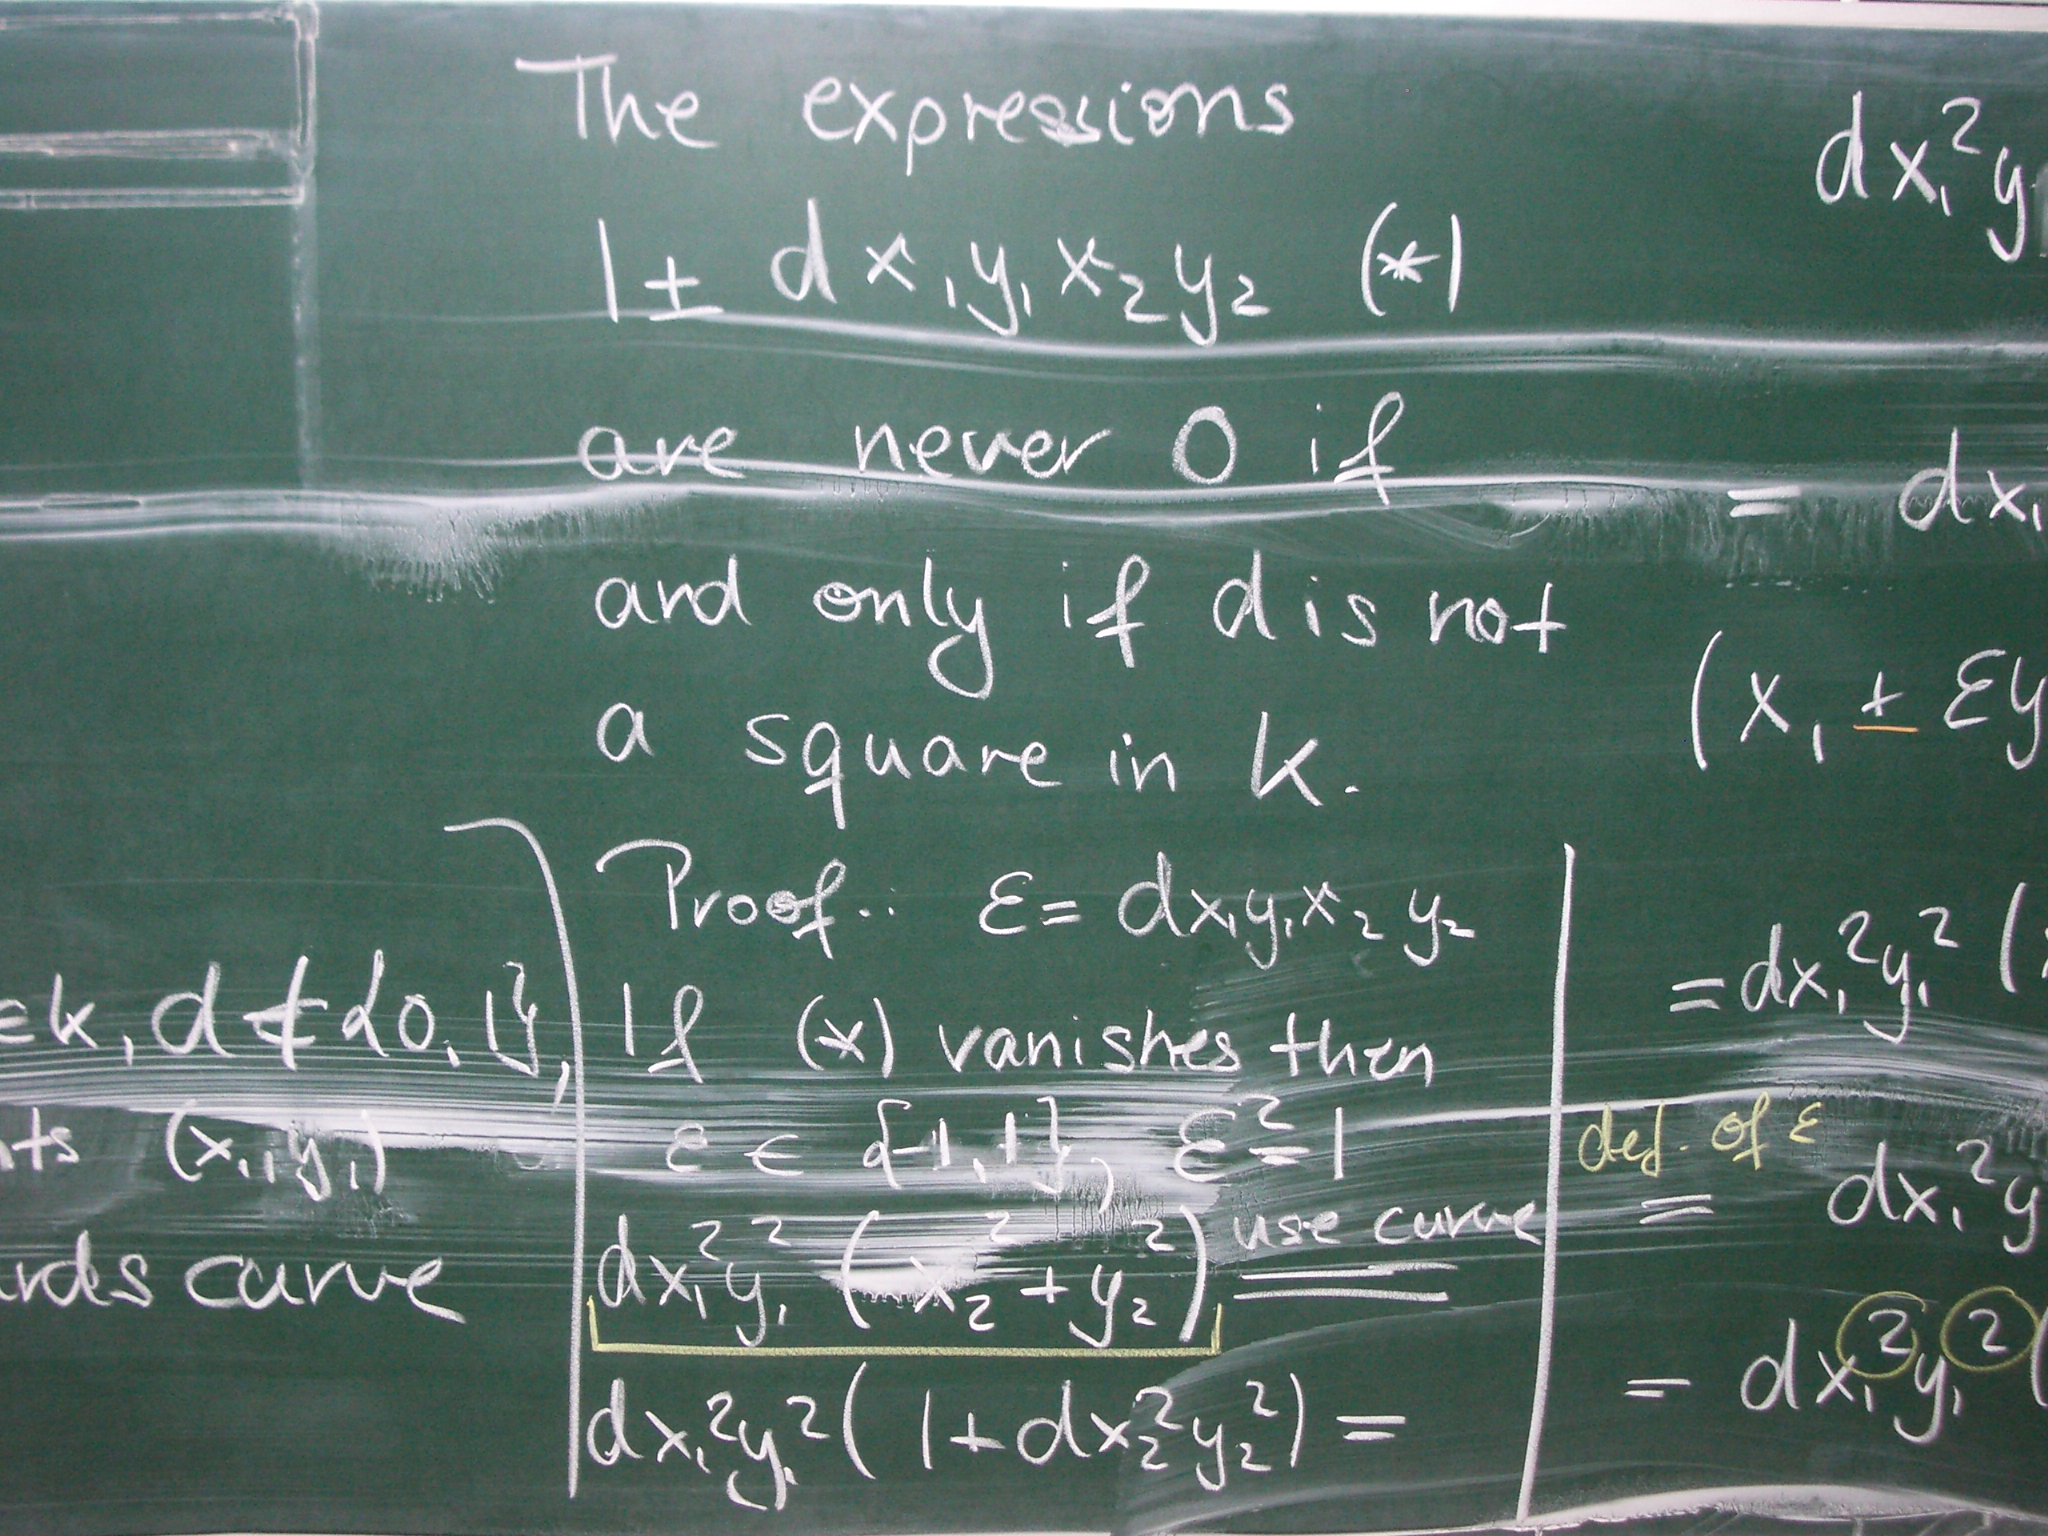 ∈k, d ∉ {0,1},
(x₁,y₁)
curve
The expressions
1 ± dx₁y₁x₂y₂ (*)
are never 0 if
and only if d is not
a square in k.
Proof: ε = dx₁y₁x₂y₂
If (*) vanishes then
ε ∈ {-1,1}, ε²=1
dx₁²y₁² (x₂²+y₂²) use curve =
dx₁²y₁² (1+dx₂²y₂²) =
dx₁²y
= dx₁
(x₁ ± εy
= dx₁²y₁² (
def. of ε
= dx₁²y
= dx₁²y₁² (